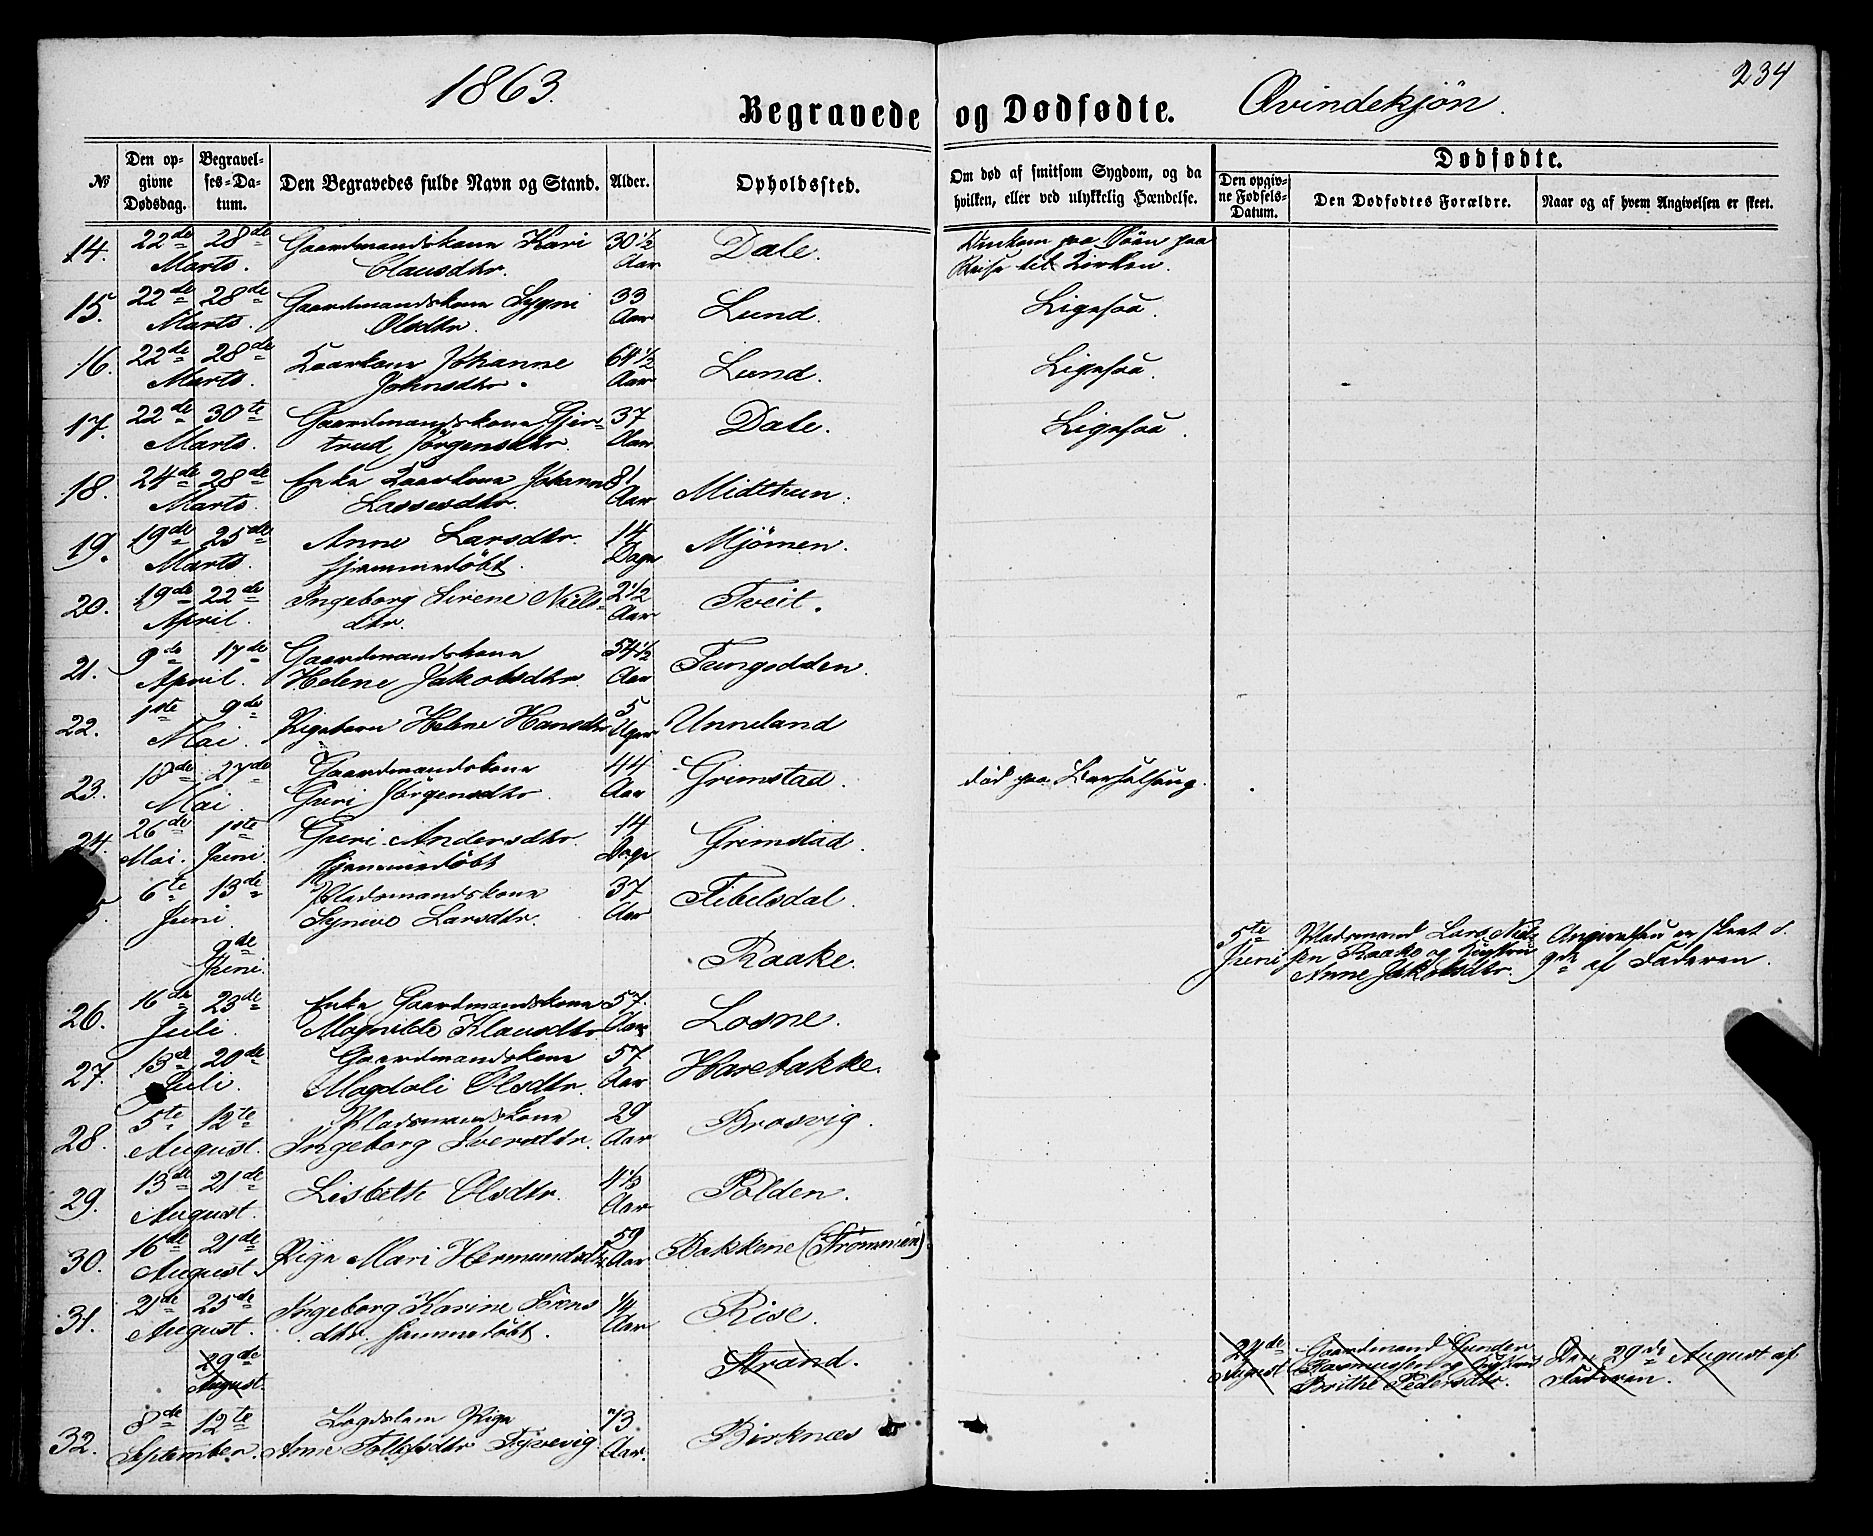 1863.
Begravede og Dødfødte.
Qvindekjøn.
234
№
Den opgivne Dødsdag.
Begravelses-Datum.
Den Begravedes fulde Navn og Stand.
Alder.
Opholdssted.
Om død af smitsom Sygdom, og da hvilken, eller ved ulykkelig Hændelse.
Dødfødte.
Den opgivne Fødsels-Datum.
Den Dødfødtes Forældre.
Naar og af hvem Angivelsen er skeet.
14. 22de 28de Gaardmandskone Kari 30 1/2 Dale. Omkom paa Søen paa
Marts. Clausdtr. Aar Reise til Kirken.
15. 22de 28de Gaardmandskone Sygni 33 Lund. Ligesaa.
Marts. Olsdtr. Aar
16. 22de 28de Kaarkone Johanne 64 1/2 Lund. Ligesaa.
Marts. Johnsdtr. Aar
17. 22de 30te Gaardmandskone Gjer- 37 Dale. Ligesaa.
Marts. trud Jørgensdtr Aar
18. 24de 28de Enke Kaarkone Johanne 81 Midthun.
Marts. Lassesdtr. Aar
19. 19de 25de Anne Larsdtr. 14 Mjømen.
Marts. hjemmedøbt. Dage
20. 19de 22de Ingeborg Sirene Niels- 2 1/2 Tveit.
April. dtr. Aar
21. 9de 17de Gaardmandskone 54 1/2 Tungodden.
April. Helene Jakobsdtr. Aar
22. 1ste 9de Pigebarn Helene Hansdtr 5 Unneland
Mai. Uger
23. 18de 27de Gaardmandskone 44 Grimstad. død paa Barselseng.
Mai Guri Jørgensdtr. Aar
24. 26de 1ste Guri Andersdtr. 14 Grimstad.
Mai. Juni. hjemmedøbt Dage
5. 6te 13de Pladsmandskone 37 Fibelsdal.
Juni Synive Larsdtr. Aar
9de Raake. 5te Pladsmand Lars Niel- Angivelsen er skeet d.
Juni. Juni sen Raake og Hustru 9de af Faderen.
Anne Jakobsdtr.
26. 16de 23de Enke Gaardmandskone 57 Losne.
Juli. Magnilde Klausdtr. Aar
27. 13de 20de Gaardmandskone 57 Harebakke.
Juli. Magdali Olsdtr. Aar
28. 5te 12te Pladsmandskone 29 Brosvig.
August. Ingeborg Iversdtr. Aar
29. 13de 21de Lisbeth Olsdtr. 4 1/3 Polden.
August. Aar
30. 16de 21de Pige Mari Hermundsdtr 59 Bakkene (Strømmen)
August. Aar
31. 21de 25de Ingeborg Karine 1/4 Rise.
August. dtr. hjemmedøbt. Aar
29de Strand. 24de Gaardmand Gunder Den 29de August af
August. August Rasmussen og Hustru Faderen.
Brithe Pedersdtr.
32. 8de 12te Lægdslem Pige 73 Birknæs
September. Anne Aar.